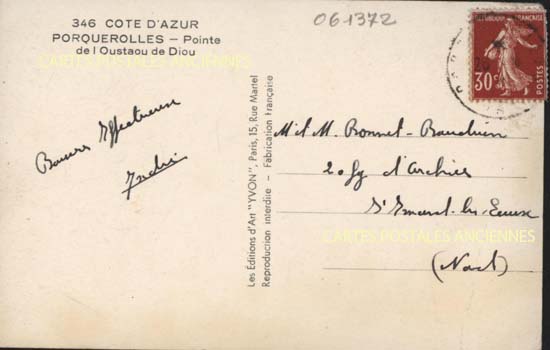 346 COTE D'AZUR
PORQUEROLLES — Pointe
de l Oustaou de Diou
CARTES POSTALES ANCIENNES
061372
REPUBLIQUE FRANÇAISE
30c
POSTES
PARIS
Les Editions d'Art "YVON", Paris, 15, Rue Martel
Reproduction interdite - Fabrication Française
Bons Affectueux
André
M et M. Bonnet-Bauduin
St Amand-les-Eaux
CARTES POSTALES ANCIENNES
(Nord)